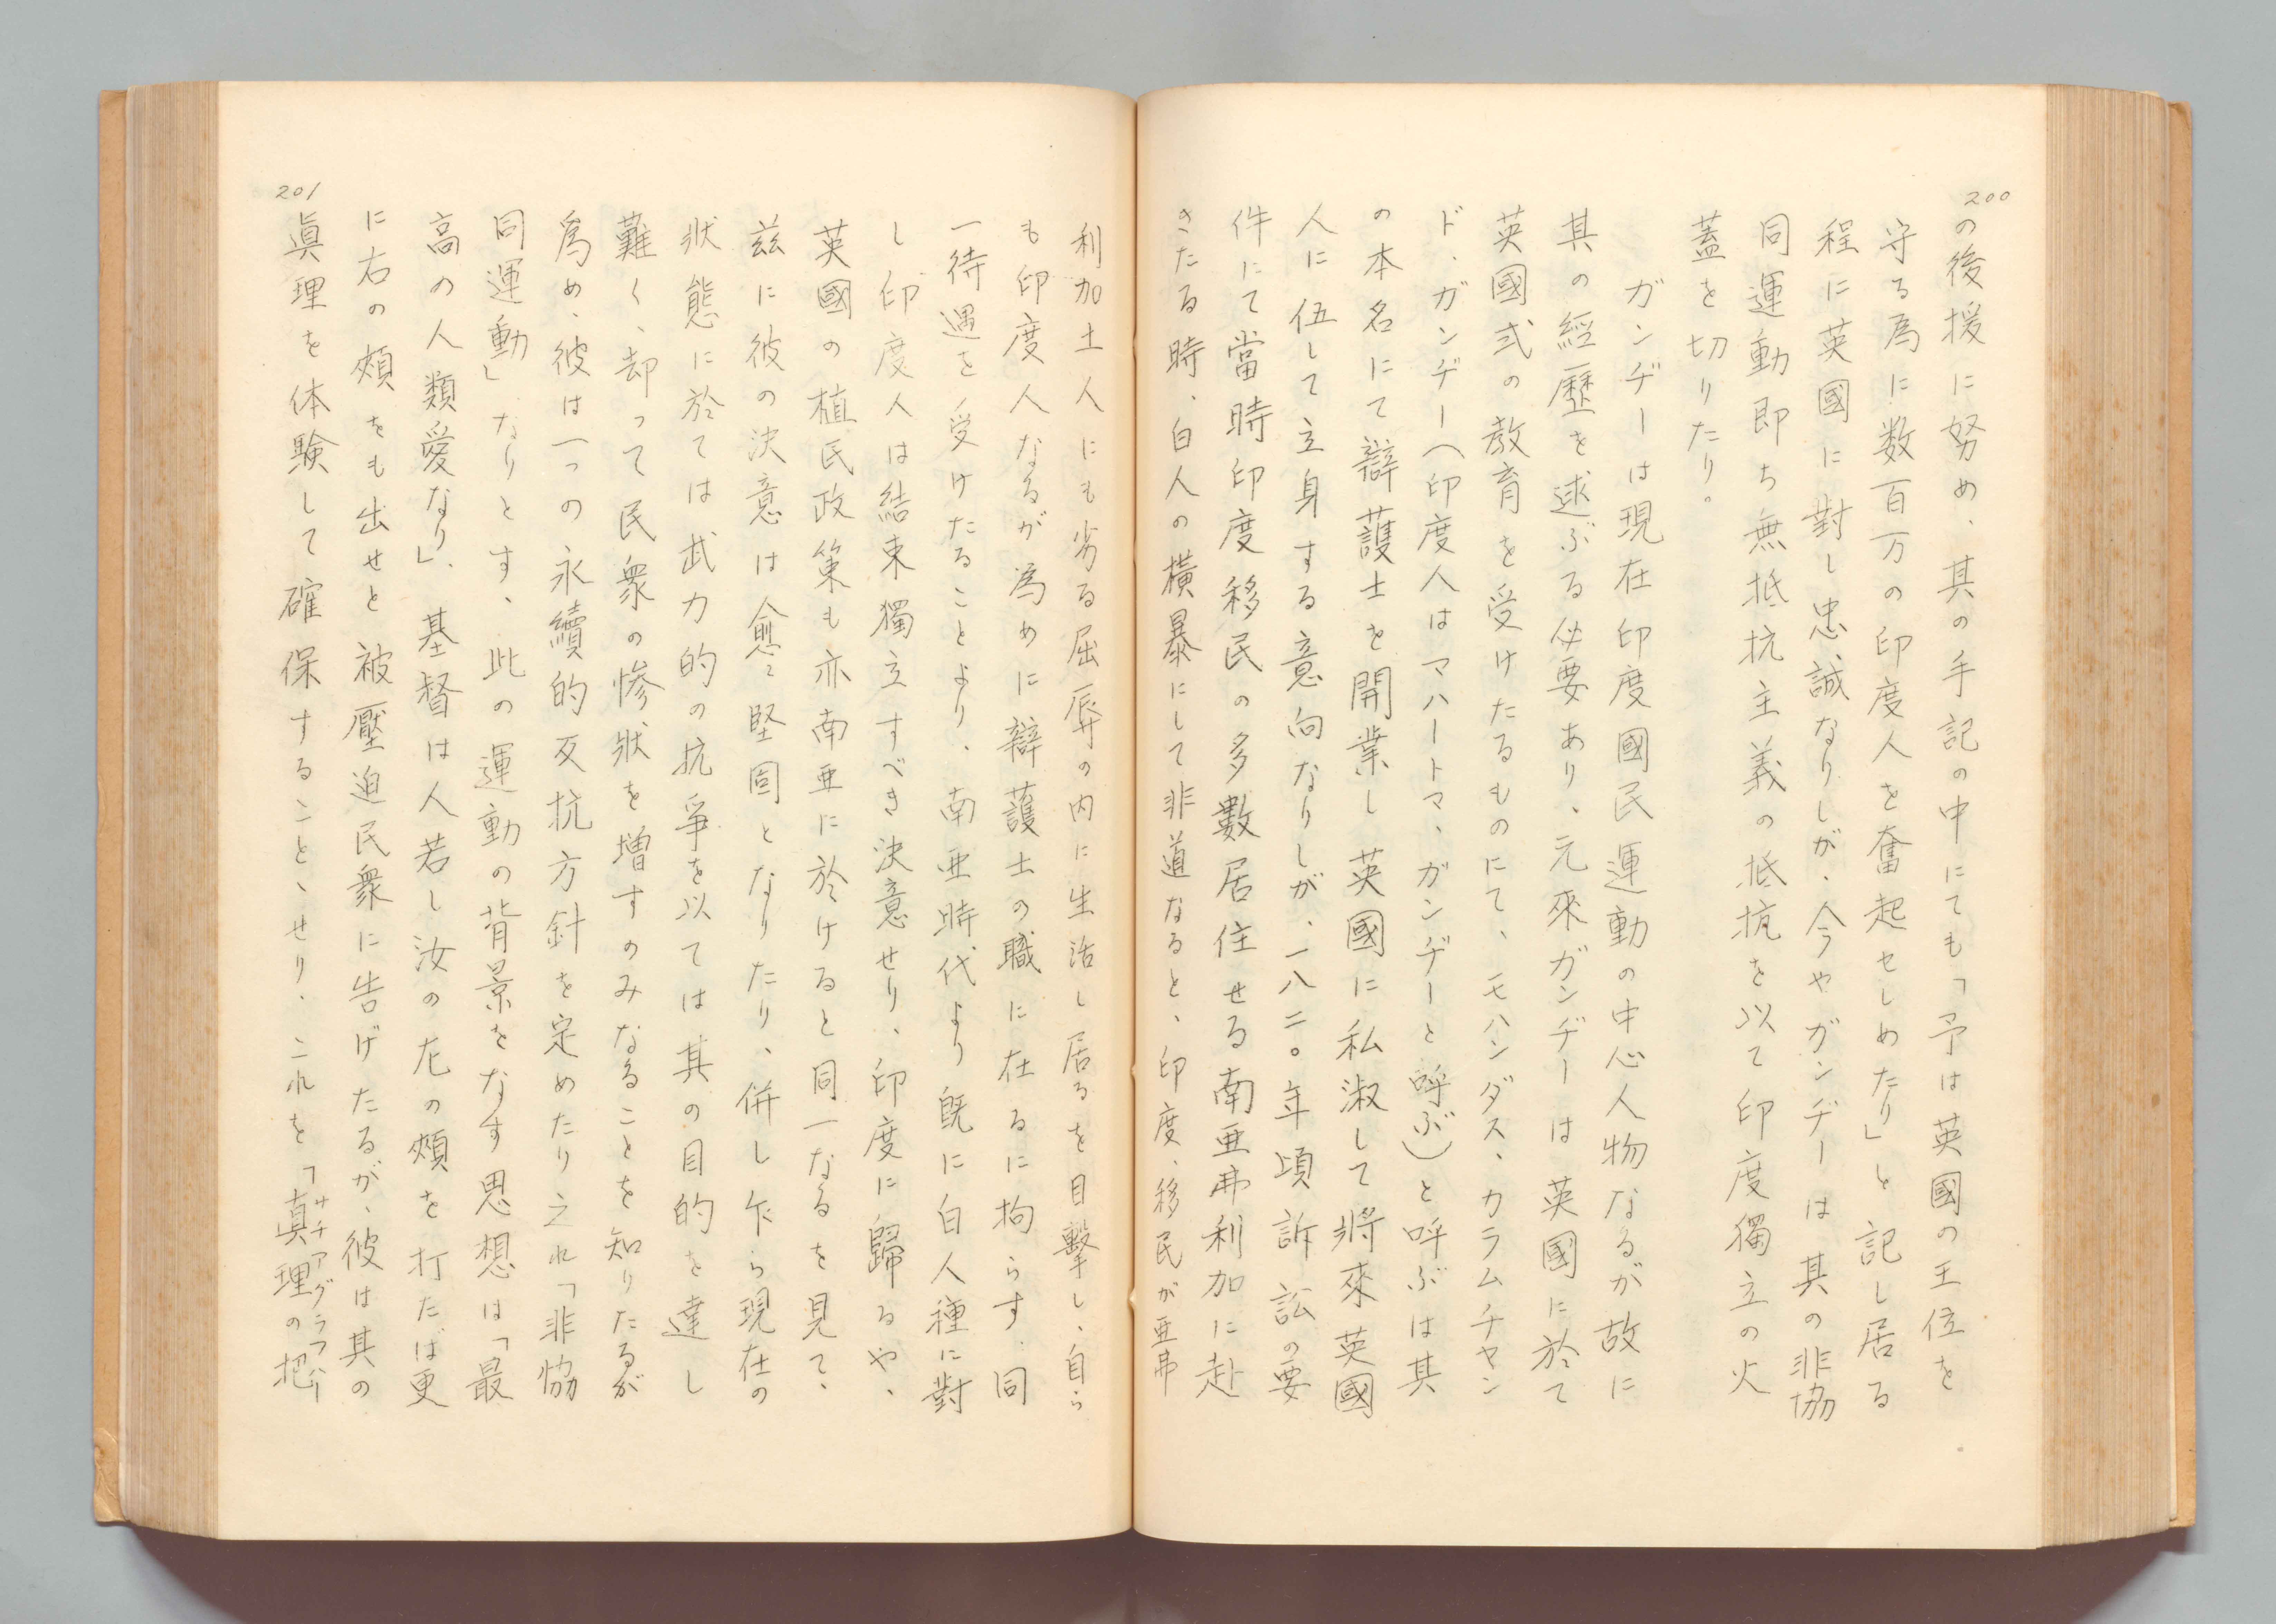 200
の後援に努め、其の手記の中にても「予は英國の王位を
守る為に数百万の印度人を奮起せしめたり」と記し居る
程に英國に對し忠誠なりしが、今やガンヂーは其の非協
同運動即ち無抵抗主義の抵抗を以て印度獨立の火
蓋を切りたり。
ガンヂーは現在印度國民運動の中心人物なるが故に
其の經歷を述ぶる必要あり、元來ガンヂーは英國に於て
英國式の教育を受けたるものにて、モハンダス、カラムチャン
ド、ガンヂー(印度人はマハートマ、ガンヂーと呼ぶ)と呼ぶは其
の本名にて辯護士を開業し英國に私淑して將來英國
人に伍して立身する意向なりしが、一八二〇年頃訴訟の要
件にて當時印度移民の多數居住せる南亜弗利加に赴
きたる時、白人の横暴にして非道なると、印度、移民が亜弗
利加土人にも劣る屈辱の内に生活し居るを目擊し、自ら
も印度人なるが為めに辯護士の職に在るに拘らす、同
一待遇を受けたることより、南亜時代より既に白人種に對
し印度人は結束獨立すべき決意せり、印度に歸るや、
英國の植民政策も亦南亜に於けると同一なるを見て、
茲に彼の決意は愈々堅固となりたり、併し乍ら現在の
狀態に於ては武力的の抗爭を以ては其の目的を達し
難く、却って民衆の惨狀を増すのみなることを知りたるが
為め、彼は一つの永續的反抗方針を定めたり之れ「非協
同運動」なりとす、此の運動の背景をなす思想は「最
高の人類愛なり」、基督は人若し汝の左の頰を打たば更
に右の頰をも出せと被壓迫民衆に告げたるが、彼は其の
眞理を体験して確保すること、せり、これを「眞理の把
サチアグラフハリ
201